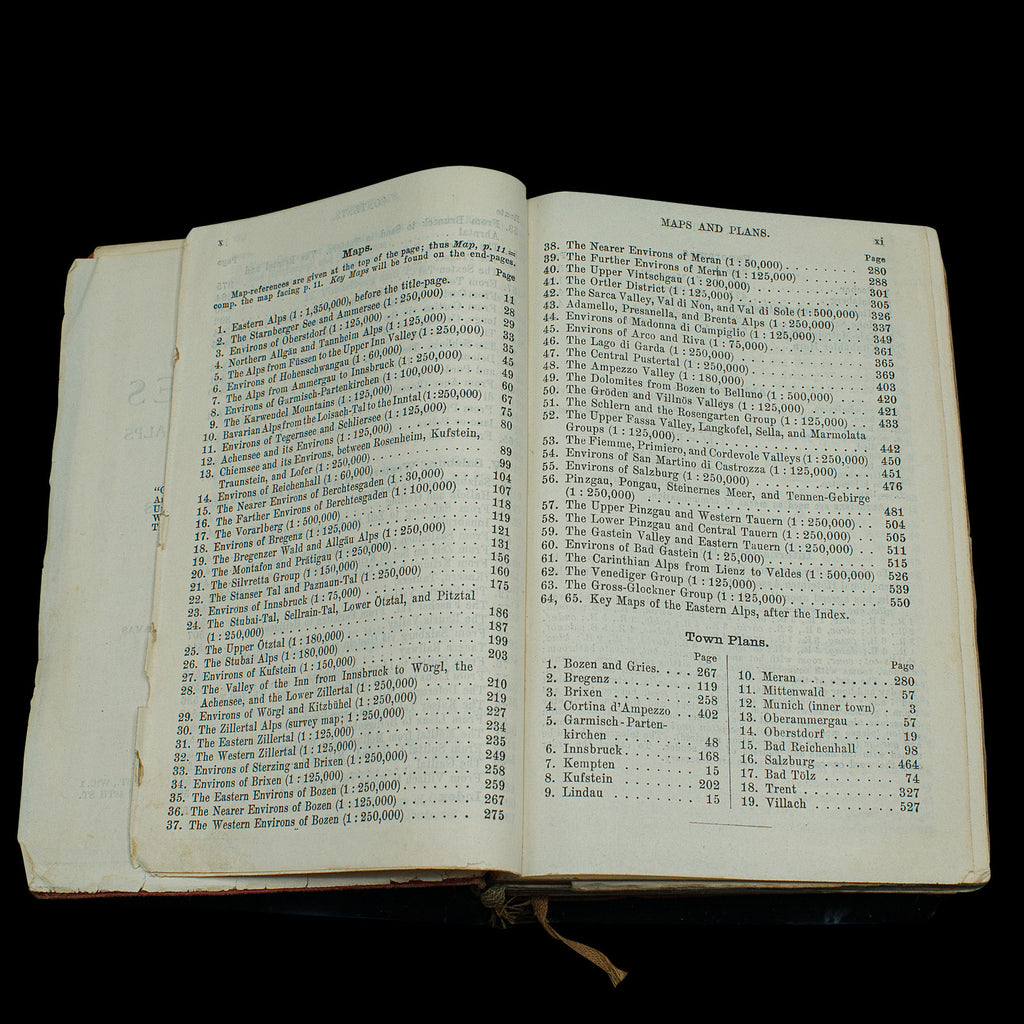 x
Maps.
Map-references are given at the top of the page; thus Map, p. 11 =
comp. the map facing p. 11. Key Maps will be found on the end-pages.
Page
1. Eastern Alps (1 : 1,350,000), before the title-page.
2. The Starnberger See and Ammersee (1 : 250,000) . . . 11
3. Environs of Oberstdorf (1 : 125,000) . . . 28
4. Northern Allgäu and Tannheim Alps (1 : 125,000) . . . 29
5. The Alps from Füssen to the Upper Inn Valley (1 : 250,000) 33
6. Environs of Hohenschwangau (1 : 60,000) . . . 35
7. The Alps from Ammergau to Innsbruck (1 : 250,000) . . . 45
8. Environs of Garmisch-Partenkirchen (1 : 100,000) . . . 49
9. The Karwendel Mountains (1 : 125,000) . . . 60
10. Bavarian Alps from the Loisach-Tal to the Inntal (1 : 250,000) 67
11. Environs of Tegernsee and Schliersee (1 : 125,000) . . . 75
12. Achensee and its Environs (1 : 125,000) . . . 80
13. Chiemsee and its Environs, between Rosenheim, Kufstein,
Traunstein, and Lofer (1 : 250,000) . . . 89
14. Environs of Reichenhall (1 : 60,000) . . . 99
15. The Nearer Environs of Berchtesgaden (1 : 30,000) . . . 104
16. The Farther Environs of Berchtesgaden (1 : 100,000) . . . 107
17. The Vorarlberg (1 : 500,000) . . . 118
18. Environs of Bregenz (1 : 125,000) . . . 119
19. The Bregenzer Wald and Allgäu Alps (1 : 250,000) . . . 121
20. The Montafon and Prätigau (1 : 250,000) . . . 131
21. The Silvretta Group (1 : 150,000) . . . 156
22. The Stanser Tal and Paznaun-Tal (1 : 250,000) . . . 160
23. Environs of Innsbruck (1 : 75,000) . . . 175
24. The Stubai-Tal, Sellrain-Tal, Lower Ötztal, and Pitztal
(1 : 250,000) . . . 186
25. The Upper Ötztal (1 : 180,000) . . . 187
26. The Stubai Alps (1 : 180,000) . . . 199
27. Environs of Kufstein (1 : 150,000) . . . 203
28. The Valley of the Inn from Innsbruck to Wörgl, the
Achensee, and the Lower Zillertal (1 : 250,000) . . . 210
29. Environs of Wörgl and Kitzbühel (1 : 250,000) . . . 219
30. The Zillertal Alps (survey map; 1 : 250,000) . . . 227
31. The Eastern Zillertal (1 : 125,000) . . . 234
32. The Western Zillertal (1 : 125,000) . . . 235
33. Environs of Sterzing and Brixen (1 : 250,000) . . . 249
34. Environs of Brixen (1 : 125,000) . . . 258
35. The Eastern Environs of Bozen (1 : 250,000) . . . 259
36. The Nearer Environs of Bozen (1 : 125,000) . . . 267
37. The Western Environs of Bozen (1 : 250,000) . . . 275
MAPS AND PLANS.
xi
Page
38. The Nearer Environs of Meran (1 : 50,000) . . . 280
39. The Further Environs of Meran (1 : 125,000) . . . 288
40. The Upper Vintschgau (1 : 200,000) . . . 301
41. The Ortler District (1 : 125,000) . . . 305
42. The Sarca Valley, Val di Non, and Val di Sole (1 : 500,000) 326
43. Adamello, Presanella, and Brenta Alps (1 : 250,000) . . . 337
44. Environs of Madonna di Campiglio (1 : 125,000) . . . 349
45. Environs of Arco and Riva (1 : 75,000) . . . 361
46. The Lago di Garda (1 : 250,000) . . . 365
47. The Central Pustertal (1 : 250,000) . . . 369
48. The Ampezzo Valley (1 : 180,000) . . . 403
49. The Dolomites from Bozen to Belluno (1 : 500,000) . . . 420
50. The Gröden and Villnös Valleys (1 : 125,000) . . . 421
51. The Schlern and the Rosengarten Group (1 : 125,000) . . . 433
52. The Upper Fassa Valley, Langkofel, Sella, and Marmolata
Groups (1 : 125,000) . . . 442
53. The Fiemme, Primiero, and Cordevole Valleys (1 : 250,000) 450
54. Environs of San Martino di Castrozza (1 : 125,000) . . . 451
55. Environs of Salzburg (1 : 250,000) . . . 476
56. Pinzgau, Pongau, Steinernes Meer, and Tennen-Gebirge
(1 : 250,000) . . . 481
57. The Upper Pinzgau and Western Tauern (1 : 250,000) . . . 504
58. The Lower Pinzgau and Central Tauern (1 : 250,000) . . . 505
59. The Gastein Valley and Eastern Tauern (1 : 250,000) . . . 511
60. Environs of Bad Gastein (1 : 25,000) . . . 515
61. The Carinthian Alps from Lienz to Veldes (1 : 500,000) 526
62. The Venediger Group (1 : 125,000) . . . 539
63. The Gross-Glockner Group (1 : 125,000) . . . 550
64, 65. Key Maps of the Eastern Alps, after the Index.
Town Plans.
Page
1. Bozen and Gries. . . . 267
2. Bregenz . . . 119
3. Brixen . . . 258
4. Cortina d'Ampezzo . . 402
5. Garmisch-Parten-
kirchen . . . 48
6. Innsbruck . . . 168
7. Kempten . . . 15
8. Kufstein . . . 202
9. Lindau . . . 15
Page
10. Meran . . . 280
11. Mittenwald . . . 57
12. Munich (inner town) . 3
13. Oberammergau . . . 57
14. Oberstdorf . . . 19
15. Bad Reichenhall . . . 98
16. Salzburg . . . 464
17. Bad Tolz . . . 74
18. Trent . . . 327
19. Villach . . . 527